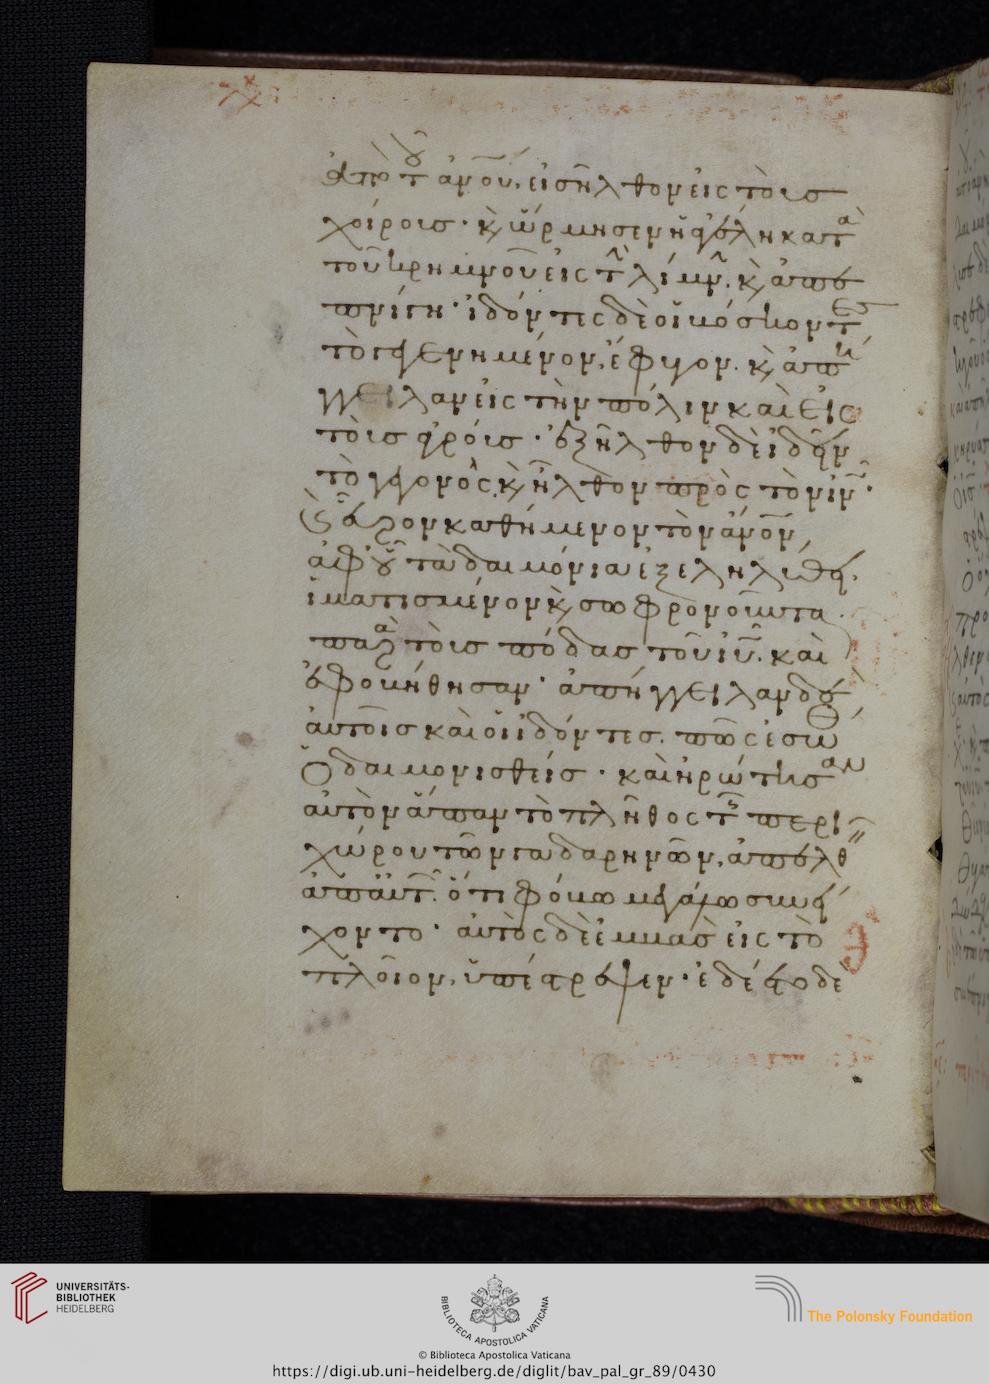 ἀπὸ τοῦ ἀνου, εἰσῆλθον εἰς τοὺς
χοίρους· κ̀ ὥρμησεν ἡ ἀγέλη κατὰ
τοῦ κρημνοῦ εἰς τ̀ λίμν. κ̀ ἀπε
πνίγη· ἰδόντες δὲ οἱ βόσκοντες
τὸ γεγενημένον, ἔφυγον. κ̀ ἀπή
γγειλαν εἰς τὴν πόλιν καὶ εἰς
τοὺς ἀγρούς· ἐξῆλθον δὲ ἰδεῖν
τὸ γεγονὸς, κ̀ ἦλθον πρὸς τὸν ιν·
κ̀ εὗρον καθήμενον τὸν ἄνον,
ἀφ' οὗ τὰ δαιμόνια ἐξεληλύθει.
ἱματισμένον κ̀ σωφρονοῦντα.
παρὰ τοὺς πόδας τοῦ ιυ. καὶ
ἐφοβήθησαν· ἀπήγγειλαν δὲ
αὐτοῖς καὶ οἱ ἰδόντες. πῶς ἐσώθ
ὁ δαιμονισθείς· καὶ ἠρώτησαν
αὐτὸν ἅπαν τὸ πλῆθος τ περι
χώρου τῶν γαδαρηνῶν, ἀπελθ
ἀπ' αὐτ. ὅτι φόβω μεγάλω συνεί
χοντο· αὐτὸς δὲ ἐμβὰς εἰς τὸ
πλοῖον, ὑπέστρεψεν· ἐδέετο δὲ
UNIVERSITÄTS-
BIBLIOTHEK
HEIDELBERG
BIBLIOTECA APOSTOLICA VATICANA
The Polonsky Foundation
© Biblioteca Apostolica Vaticana
https://digi.ub.uni-heidelberg.de/diglit/bav_pal_gr_89/0430